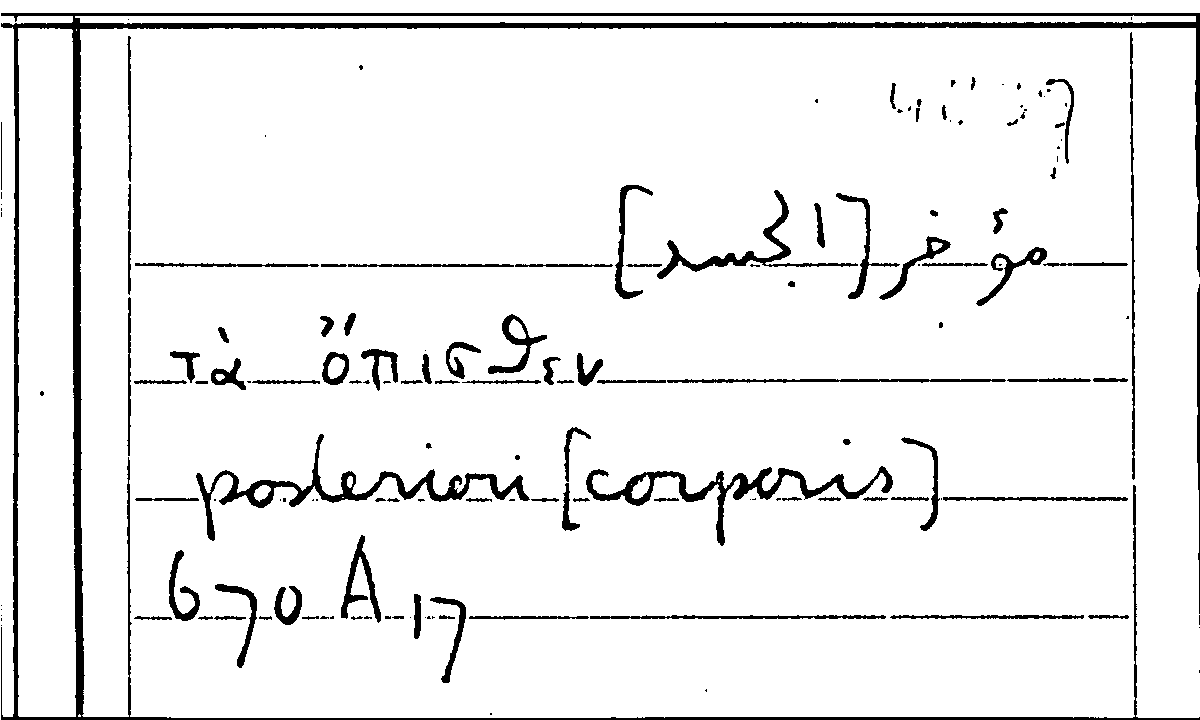 مؤخر [الجسد]
τὰ ὄπισθεν
posteriori [corporis]
670 A 17